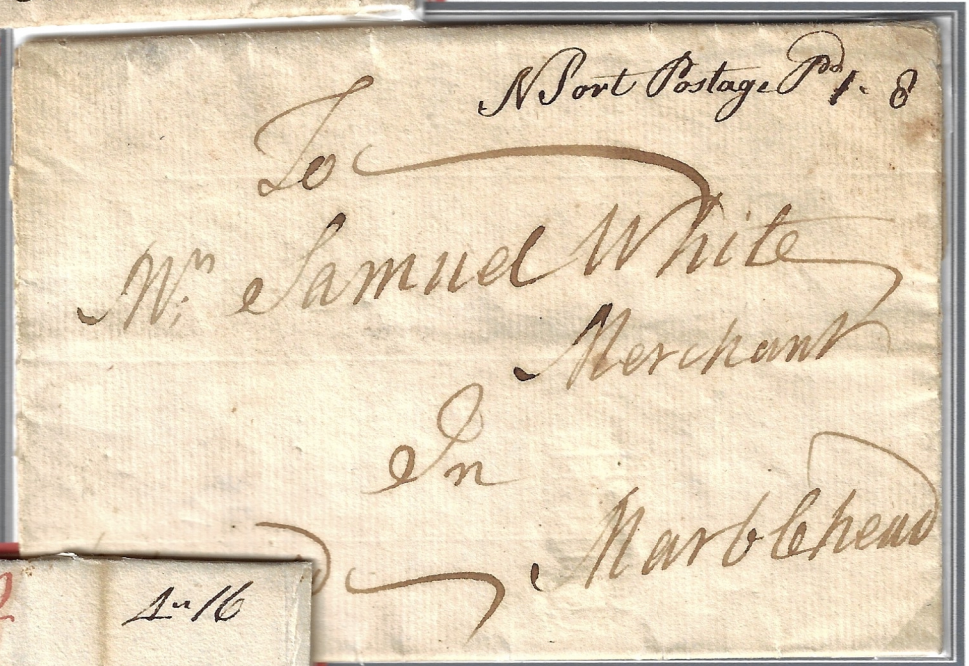 N Port Postage Pd 1. 8
To
Mr. Samuel White
Merchant
In
Marblehead
4" 16